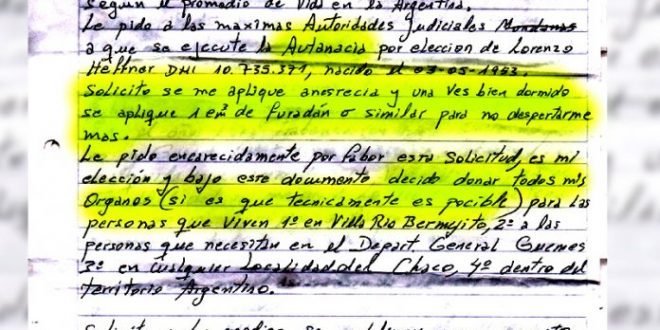 Según el promedio de Vida en la Argentina.
Le pido a las maximas Autoridades Judiciales
a que se ejecute la Autanacia por eleccion de Lorenzo
Heffner DNI 10.735.371, nacido el 03-05-1953.
Solicito se me aplique anesrecia y una ves bien dormido
se aplique 1 cm³ de furadán o similar para no despertarme
mas.
Le pido encarecidamente por fabor esta solicitud, es mi
elección y bajo este documento decido donar todos mis
Organos (si es que tecnicamente es pocible) para las
personas que viven 1º en Villa Rio Bermejito, 2º a las
personas que necesitan en el Depart. General Guemes
3º en cualquier Localidad del Chaco, 4º dentro del
territorio Argentino.